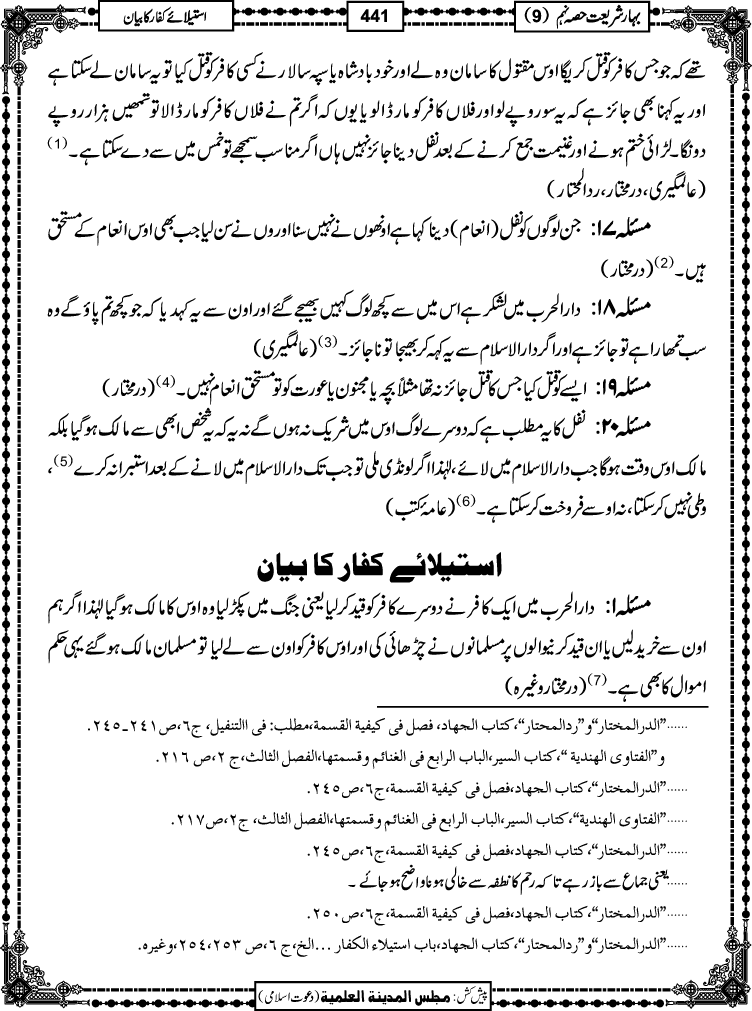 بہار شریعت حصہ نہم (9)
441
استیلائے کفار کا بیان
تھے کہ جو جس کافر کو قتل کریگا اوس مقتول کا سامان وہ لے اور خود بادشاہ یا سپہ سالار نے کسی کافر کو قتل کیا تو یہ سامان لے سکتا ہے
اور یہ کہنا بھی جائز ہے کہ یہ سو روپے لو اور فلاں کافر کو مار ڈالو یا یوں کہ اگر تم نے فلاں کافر کو مار ڈالا تو تمھیں ہزار روپے
دونگا۔ لڑائی ختم ہونے اور غنیمت جمع کرنے کے بعد نفل دینا جائز نہیں ہاں اگر مناسب سمجھے تو خمس میں سے دے سکتا ہے۔ (1)
(عالمگیری، درمختار، ردالمحتار)
مسئلہ ۱۷: جن لوگوں کو نفل (انعام) دینا کہا ہے اونھوں نے نہیں سنا اوروں نے سن لیا جب بھی اوس انعام کے مستحق
ہیں۔ (2) (درمختار)
مسئلہ ۱۸: دارالحرب میں لشکر ہے اس میں سے کچھ لوگ کہیں بھیجے گئے اور اون سے یہ کہدیا کہ جو کچھ تم پاؤ گے وہ
سب تمھارا ہے تو جائز ہے اور اگر دارالاسلام سے یہ کہہ کر بھیجا تو ناجائز۔ (3) (عالمگیری)
مسئلہ ۱۹: ایسے کو قتل کیا جس کا قتل جائز نہ تھا مثلاً بچہ یا مجنون یا عورت کو تو مستحق انعام نہیں۔ (4) (درمختار)
مسئلہ ۲۰: نفل کا یہ مطلب ہے کہ دوسرے لوگ اوس میں شریک نہ ہوں گے نہ یہ کہ یہ شخص ابھی سے مالک ہوگیا بلکہ
مالک اوس وقت ہوگا جب دارالاسلام میں لائے، لہٰذا اگر لونڈی ملی تو جب تک دارالاسلام میں لانے کے بعد استبرا نہ کرے (5)،
وطی نہیں کرسکتا، نہ اوسے فروخت کرسکتا ہے۔ (6) (عامۂ کتب)
استیلائے کفار کا بیان
مسئلہ ۱: دارالحرب میں ایک کافر نے دوسرے کافر کو قید کرلیا یعنی جنگ میں پکڑ لیا وہ اوس کا مالک ہوگیا لہٰذا اگر ہم
اون سے خرید لیں یا ان قید کرنیوالوں پر مسلمانوں نے چڑھائی کی اور اوس کافر کو اون سے لے لیا تو مسلمان مالک ہوگئے یہی حکم
اموال کا بھی ہے۔ (7) (درمختار وغیرہ)
......”الدرالمختار“و”ردالمحتار“،کتاب الجهاد، فصل فی کیفیة القسمة،مطلب: فی االتنفیل، ج٦،ص٢٤١۔٢٤٥.
و”الفتاوی الهندیة “،کتاب السیر،الباب الرابع فی الغنائم وقسمتها،الفصل الثالث،ج ٢،ص ٢١٦.
......”الدرالمختار“،کتاب الجهاد،فصل فی کیفیة القسمة،ج٦،ص٢٤٥.
......”الفتاوی الهندیة“،کتاب السیر،الباب الرابع فی الغنائم وقسمتها،الفصل الثالث، ج٢،ص٢١٧.
......”الدرالمختار“،کتاب الجهاد،فصل فی کیفیة القسمة،ج٦،ص٢٤٥.
......یعنی جماع سے باز رہے تاکہ رحم کا نطفہ سے خالی ہونا واضح ہوجائے ۔
......”الدرالمختار“،کتاب الجهاد،فصل فی کیفیة القسمة،ج٦،ص٢٥٠.
......”الدرالمختار“و”ردالمحتار“،کتاب الجهاد،باب استیلاء الکفار ...الخ،ج ٦،ص ٢٥٣،٢٥٤،وغیرہ.
پیش کش: مجلس المدینة العلمیة (دعوت اسلامی)